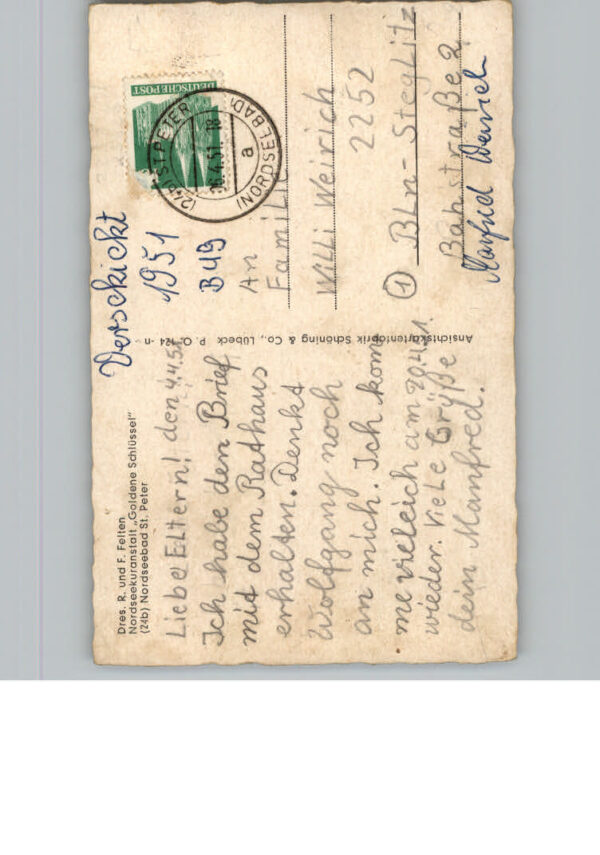 Dres. R. und F. Felten
Nordseekuranstalt „Goldene Schlüssel"
(24b) Nordseebad St. Peter
Liebe Eltern! den 4.4.51.
Ich habe den Brief
mit dem Rathaus
erhalten. Denkt
Wolfgang noch
an mich. Ich kom
me vieleich am 20.4.51.
wieder. Viele Grüße
dein Manfred.
Ansichtskartenfabrik Schöning & Co., Lübeck P. O. 124 -n-
Verschickt
1951
B49
DEUTSCHE POST
(24b) ST. PETER
(NORDSEEBAD)
6.4.51. 18
a
An
Familie
Willi Weirich
2252
(1) Bln-Steglitz
Bahstraße 2
Manfred Weirich